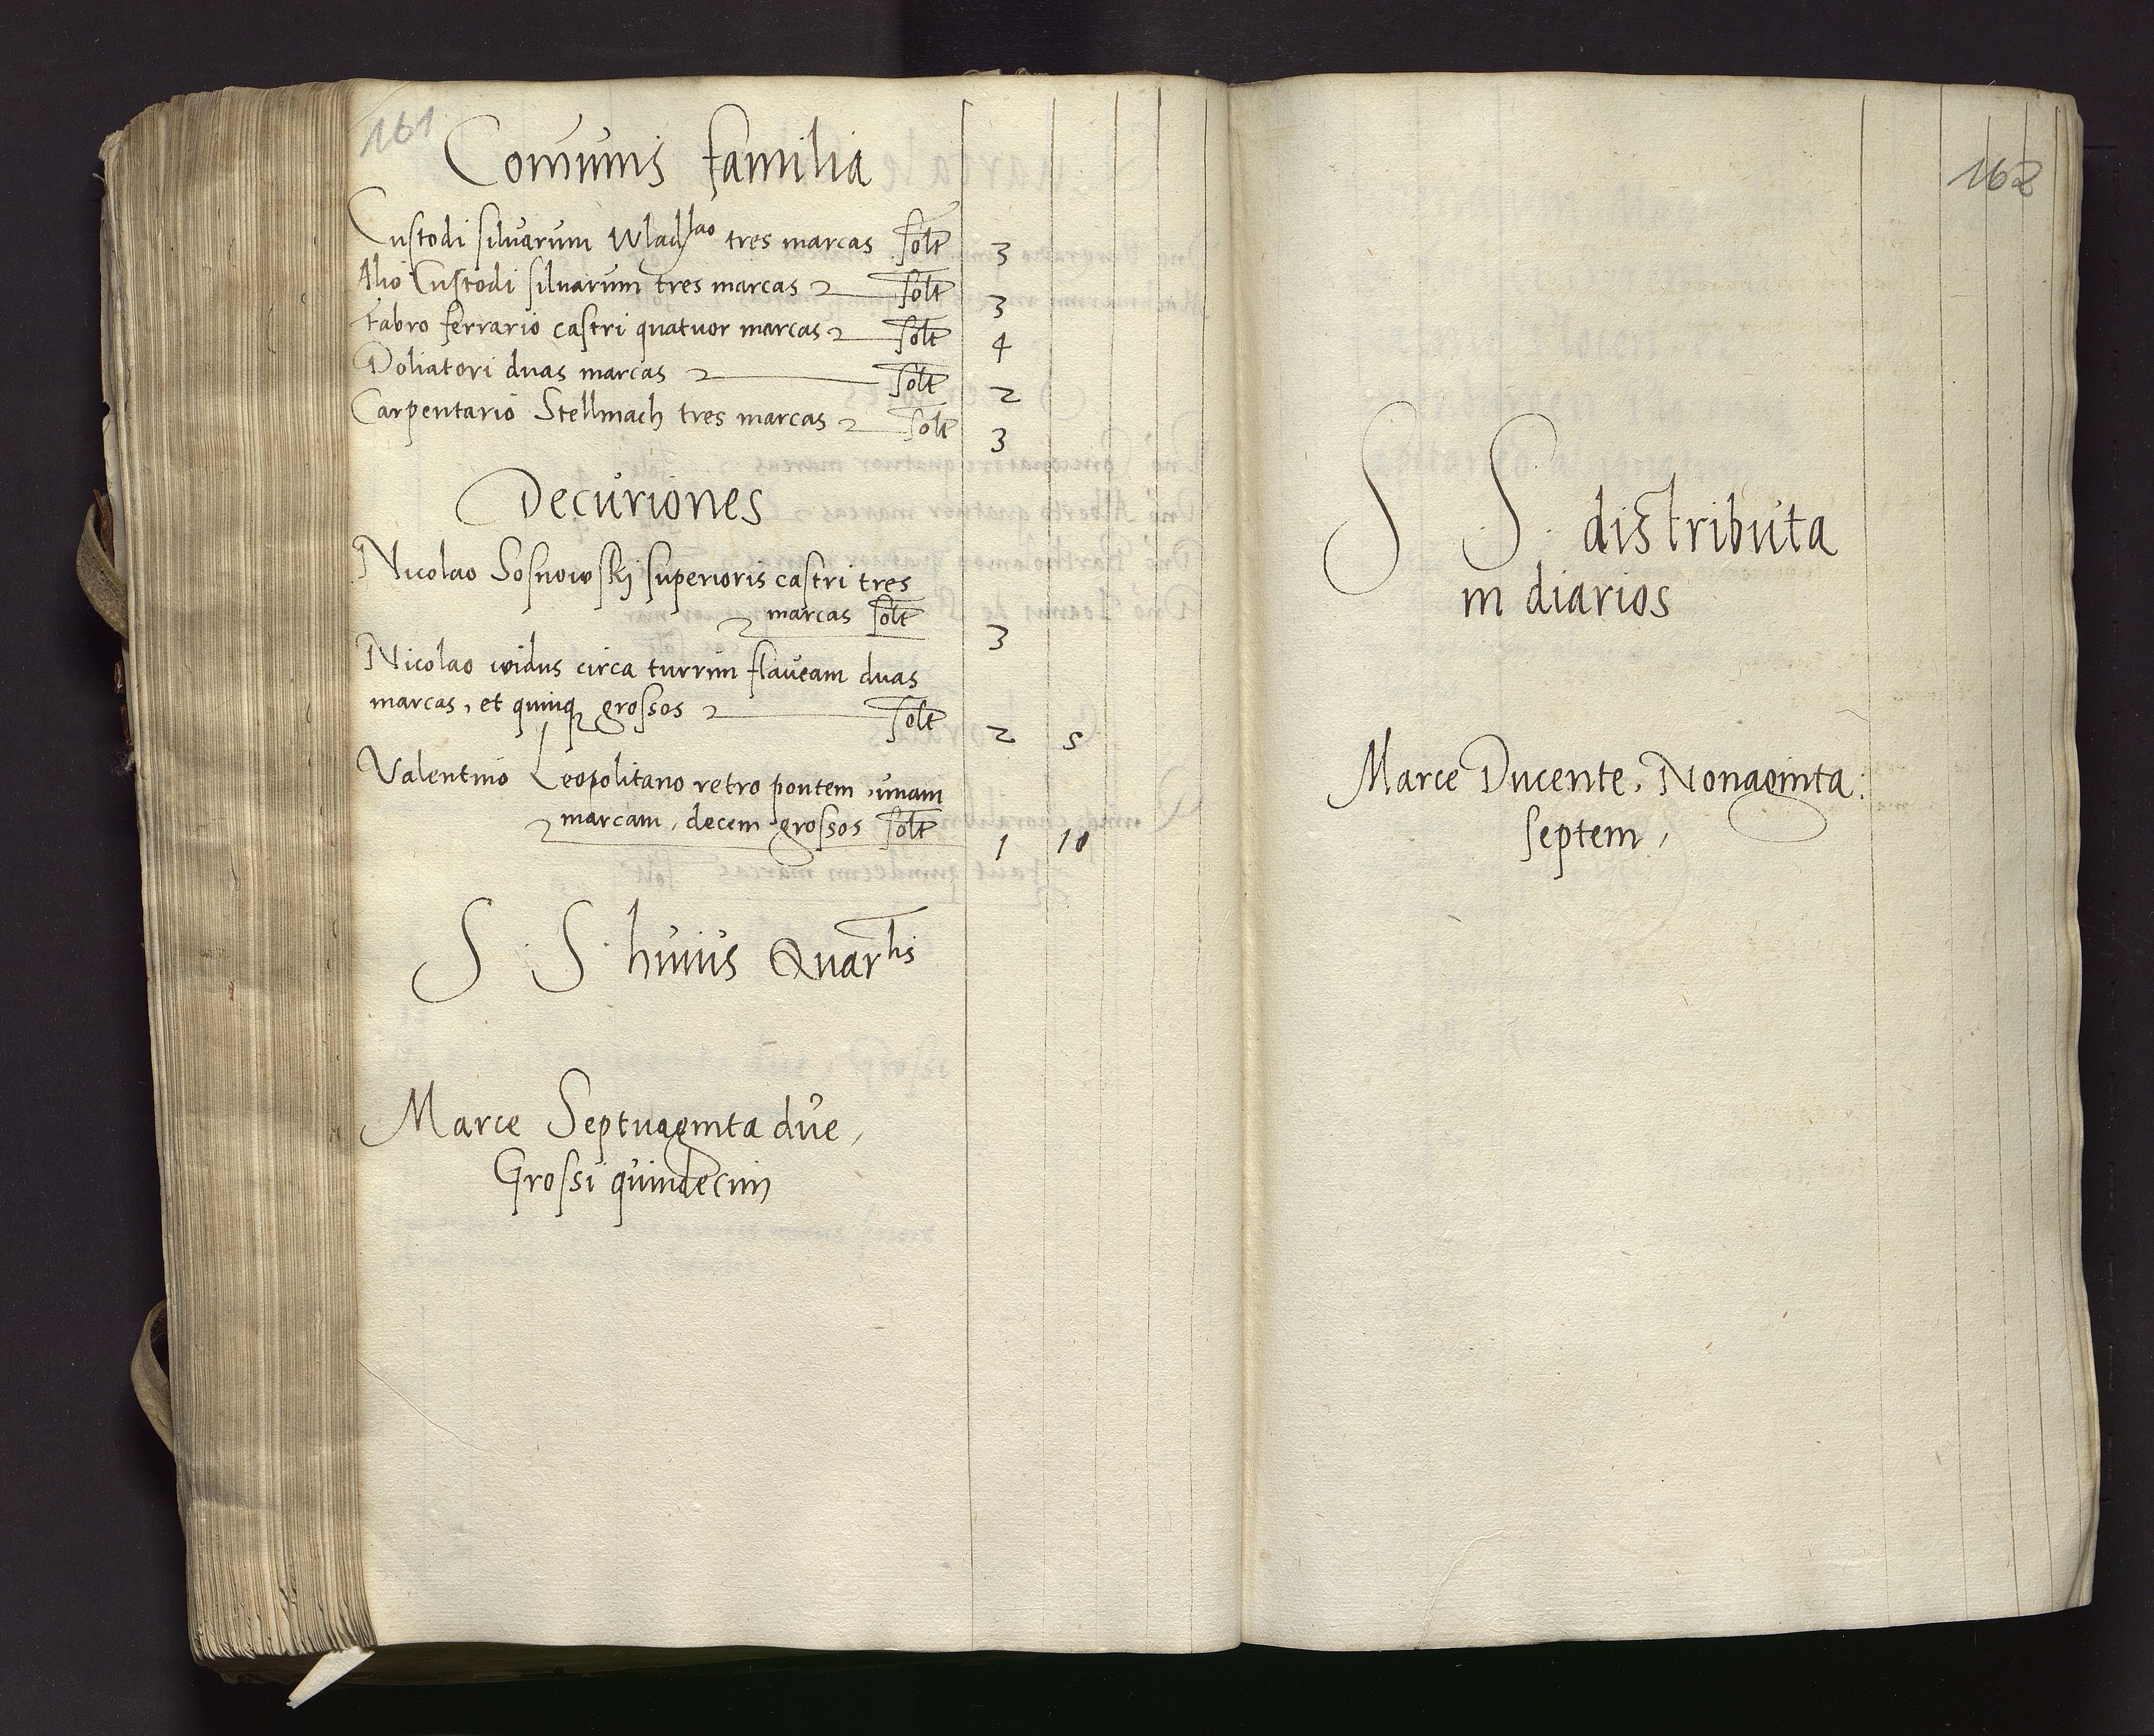 161
Comunis familia
Custodi silvarum Wladlao tres marcas solt 3
Alio Custodi silvarum tres marcas solt 3
Fabro ferrario castri quatuor marcas solt 4
Doliatori duas marcas solt 2
Carpentario Stellmach tres marcas solt 3
Decuriones
Nicolao Sosnowskj superioris castri tres
marcas solt 3
Nicolao widus circa turrim flaveam duas
marcas, et quinq grossos solt 2 5
Valentino Leopolitano retro pontem, unam
marcam, decem grossos solt 1 10
S. S. huius Quartlis
Marce Septuaginta due,
Grossi quindecim
162
S S. distributa
in diarios
Marce Ducente, Nonaginta:
septem,